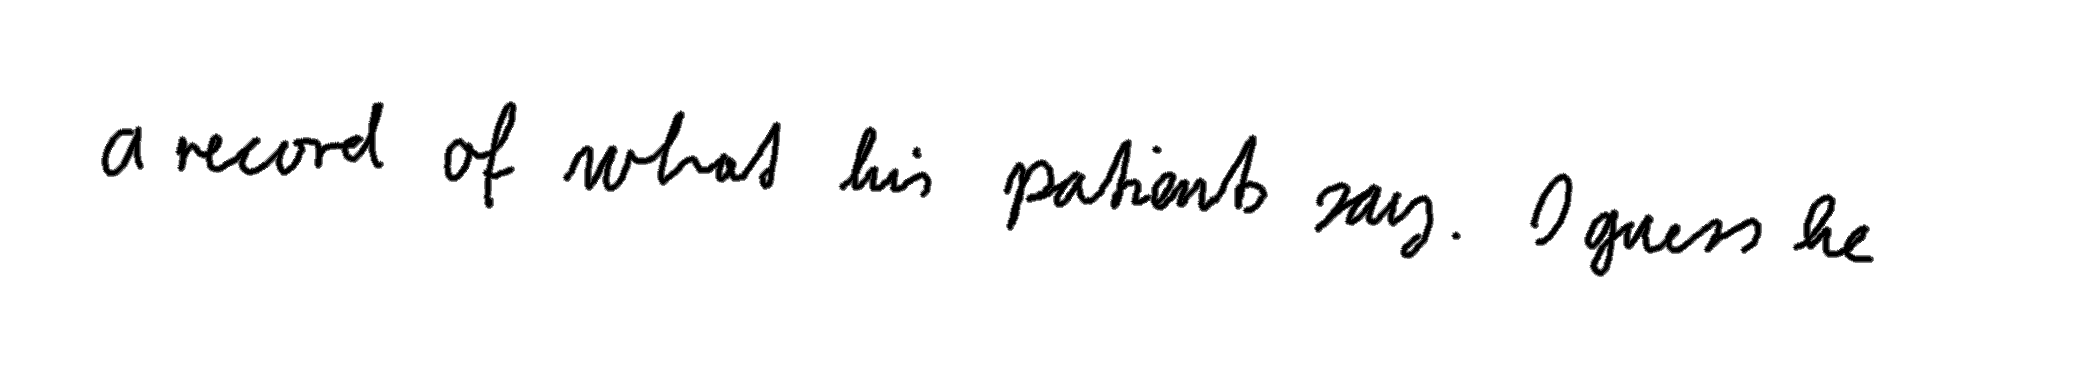 a record of what his patients say. I guess he